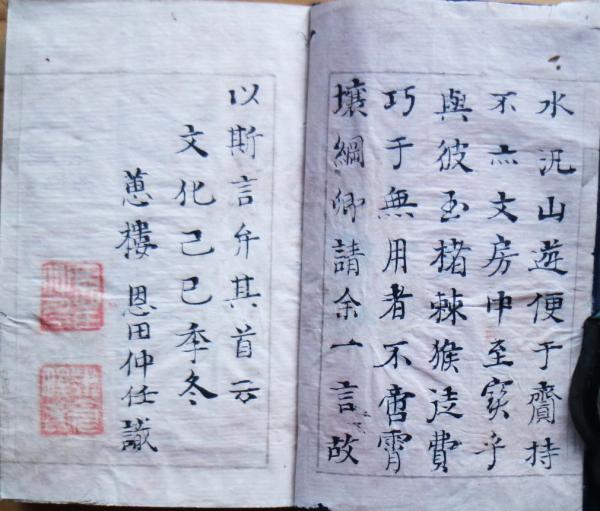 水汎山遊便于齎持
不亦文房中至寶乎
與彼玉楮棘猴徒費
巧于無用者不啻霄
壤綱卿請余一言故
以斯言弁其首云
文化己巳季冬
蕙樓 恩田仲任識